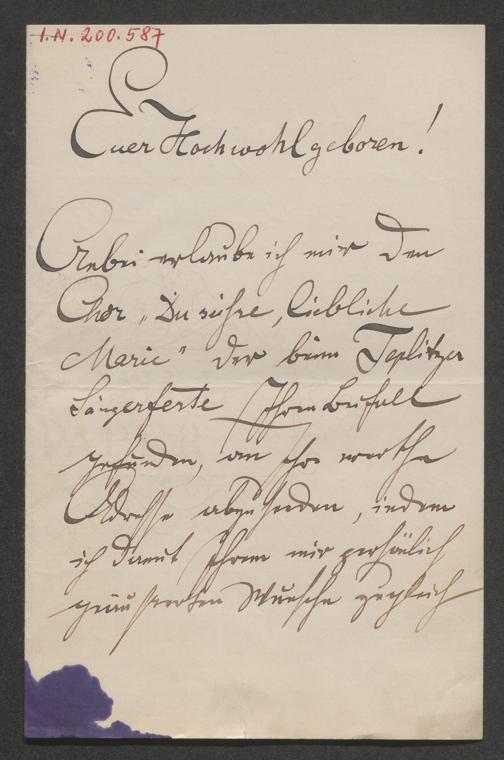 I.N. 200.587
Euer Hochwohlgeboren!
Anbei erlaube ich mir den
Chor „Du süsse, liebliche
Marie" der beim Teplitzer
Sängerfeste Ihren Beifall
gefunden, an Ihre werthe
Adresse abzusenden, indem
ich damit Ihrem mir persönlich
geäusserten Wunsche zugleich